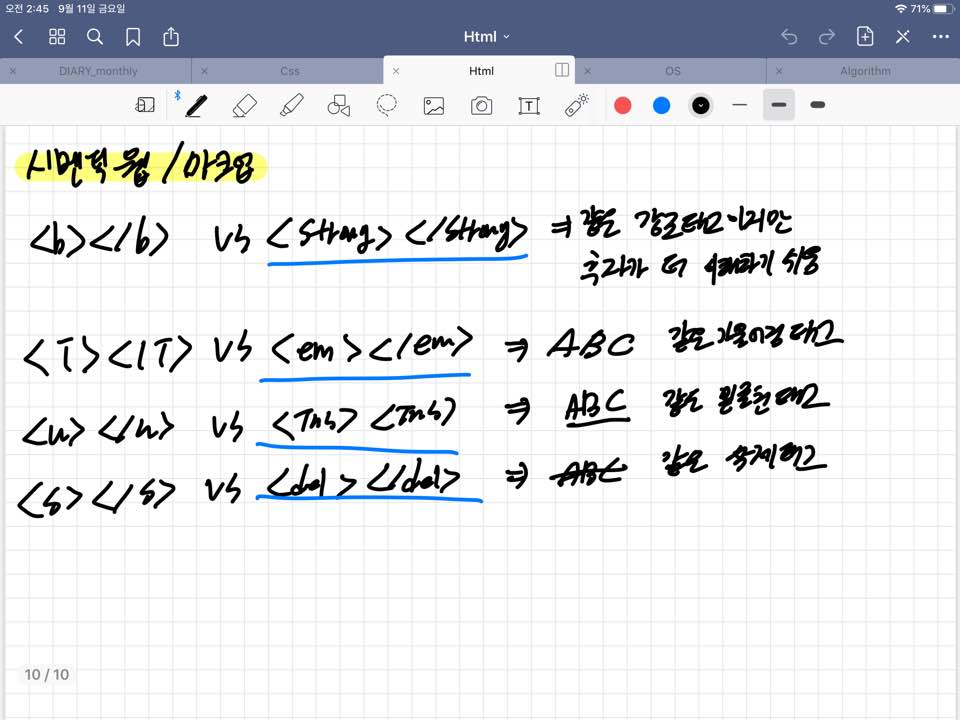 오전 2:45 9월 11일 금요일 71%
Html
DIARY_monthly Css Html OS Algorithm
시멘틱 웹 / 마크업
<b></b> vs <strong></strong> ⇒ 같은 강조태그이지만
추가가 더 이해하기 쉬움
<i></i> vs <em></em> ⇒ ABC 같은 기울어짐 태그
<u></u> vs <ins><ins> ⇒ ABC 같은 밑줄친 태그
<s></s> vs <del></del> ⇒ ABC 같은 삭제 태그
10 / 10